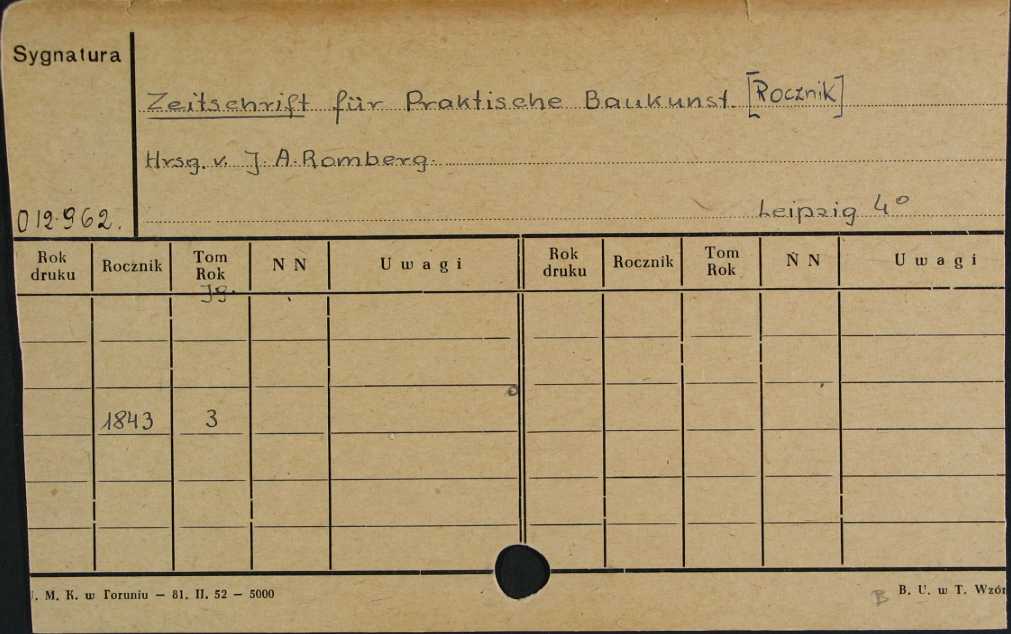 Sygnatura
Zeitschrift für Praktische Baukunst. [Rocznik]
Hrsg. v. J. A. Romberg.
012.962.
Leipzig 4°
Rok druku Rocznik Tom Rok N N Uwagi Rok druku Rocznik Tom Rok N N Uwagi
Jg.
1843 3
. M. K. w Toruniu — 81. II. 52 — 5000
B B. U. w T. Wzór